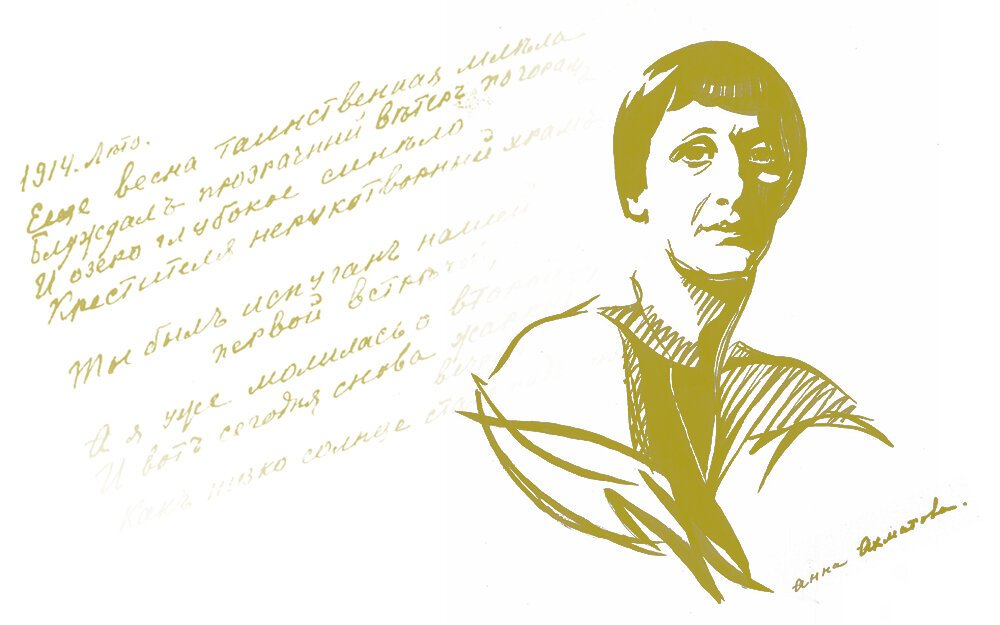 1914. Лѣто.
Еще весна таинственная млѣла
Блуждалъ прозрачный вѣтеръ по горамъ
И озеро глубокое синѣло
Крестителя нерукотворный храмъ
Ты былъ испуганъ нашей
первой встрѣчей,
А я уже молилась о второй,
И вотъ сегодня снова
Какъ низко солнце
Анна Ахматова.